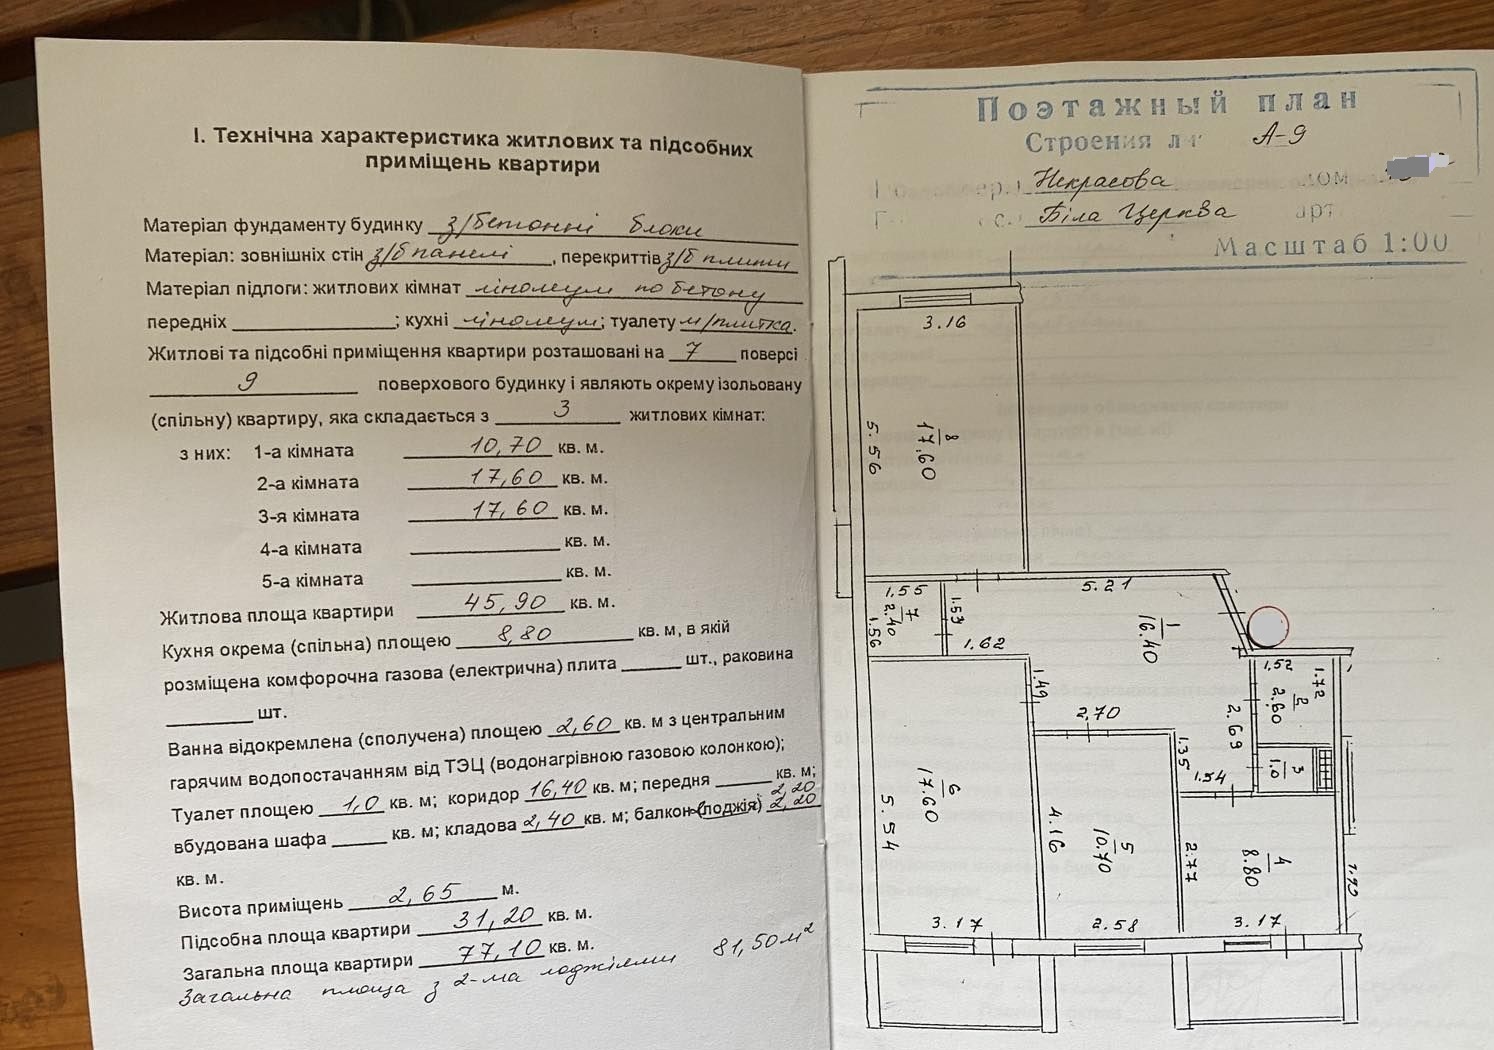 І. Технічна характеристика житлових та підсобних
приміщень квартири
Матеріал фундаменту будинку з/бетонні блоки
Матеріал: зовнішніх стін з/б панелі, перекриттів з/б плити
Матеріал підлоги: житлових кімнат лінолеум по бетону
передніх ____; кухні лінолеум; туалету м/плитка.
Житлові та підсобні приміщення квартири розташовані на 7 поверсі
9 поверхового будинку і являють окрему ізольовану
(спільну) квартиру, яка складається з 3 житлових кімнат:
з них: 1-а кімната 10,70 кв. м.
2-а кімната 17,60 кв. м.
3-я кімната 17,60 кв. м.
4-а кімната ____ кв. м.
5-а кімната ____ кв. м.
Житлова площа квартири 45,90 кв. м.
Кухня окрема (спільна) площею 8,80 кв. м, в якій
розміщена комфорочна газова (електрична) плита ____ шт., раковина
____ шт.
Ванна відокремлена (сполучена) площею 2,60 кв. м з центральним
гарячим водопостачанням від ТЭЦ (водонагрівною газовою колонкою);
Туалет площею 1,0 кв. м; коридор 16,40 кв. м; передня ____ кв. м;
2,20
вбудована шафа ____ кв. м; кладова 2,40 кв. м; балкон (лоджія) 2,20
кв. м.
Висота приміщень 2,65 м.
Підсобна площа квартири 31,20 кв. м.
Загальна площа квартири 77,10 кв. м.
Загальна площа з 2-ма лоджіями 81,50 м²
Поэтажный план
Строения лит А-9
Некрасова дом
Біла Церква
Масштаб 1:00
3.16
5.56
8
17.60
1.55
7
2.40
1.56
1.53
1.62
5.21
1
16.40
1.49
2.70
1.52
1.72
2
2.60
2.69
1.35
1.54
3
1.0
6
17.60
5.54
4.16
5
10.70
2.77
4
8.80
1.90
3.17
2.58
3.17